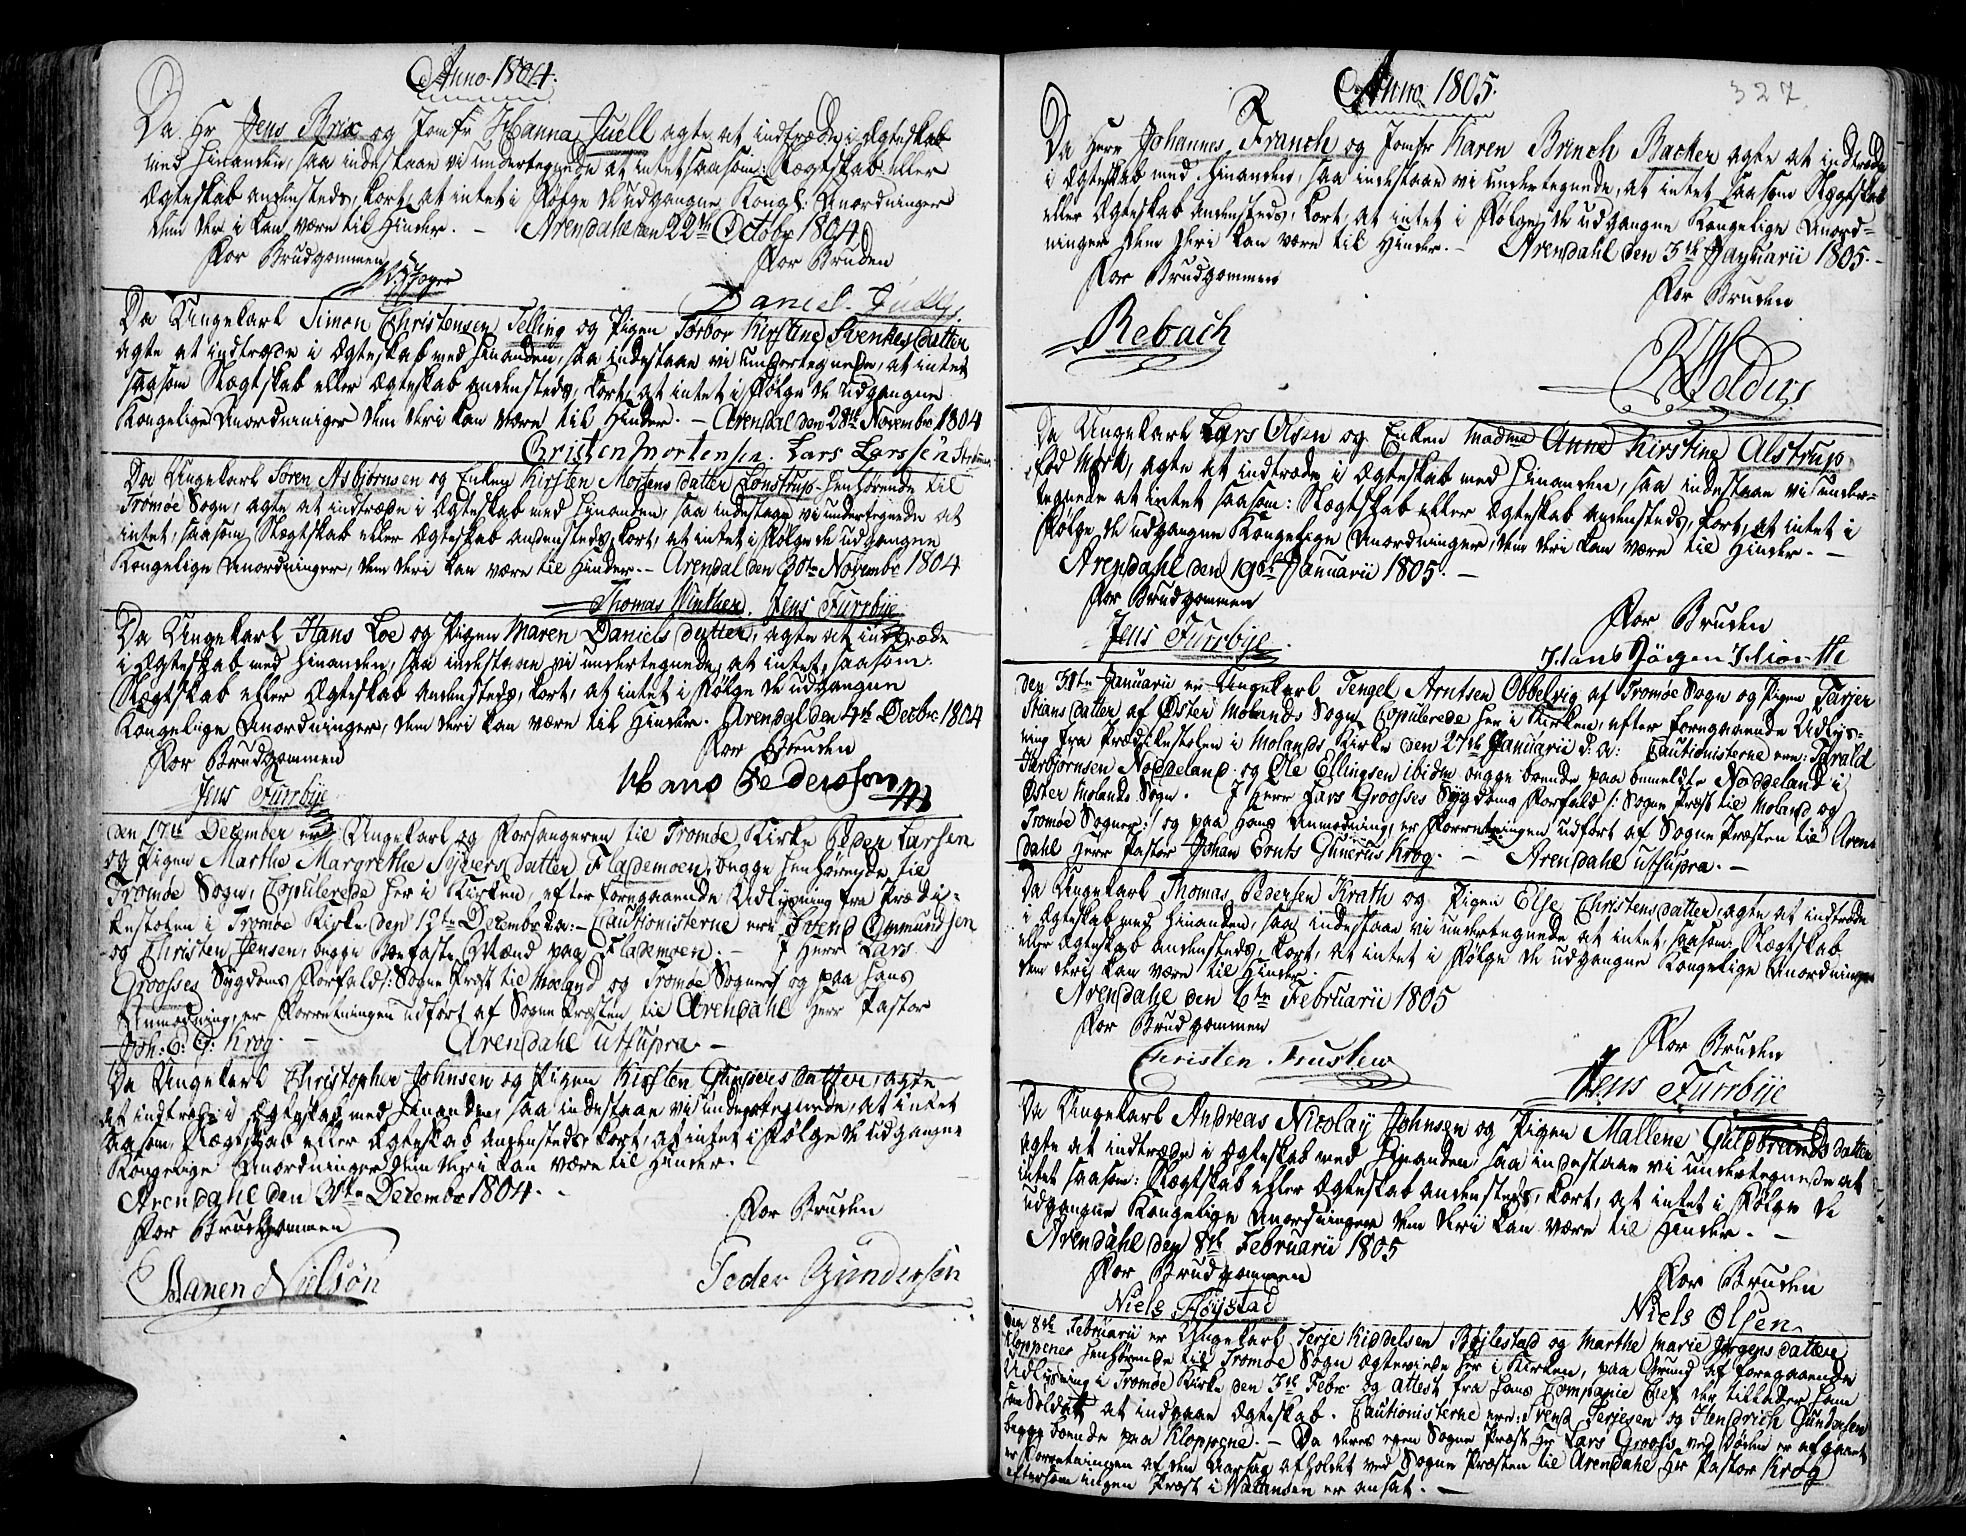 Anno 1804.
Da Hr Jens Brix og Jomfr Hanna Juell agte at indtræde i Ægteskab
med hinanden, saa indestaae vi undertegnede at intet saasom: Slægtskab eller
Ægteskab andensteds, kort, at intet i Følge de udgangne Kongl: Anordninger
dem deri kan være til Hinder. — Arendahl den 22de Octobr 1804
For Brudgommen For Bruden
Daniel Juell
Da Ungekarl Simon Christensen Telling og Pigen Torbor Kirstine Svenkesdatter
agte at indtræde i Ægteskab med hinanden, saa indestaae vi undertegnede, at intet
saasom Slægtskab eller Ægteskab andensteds, kort, at intet i Følge de udgangne
Kongelige Anordninger dem deri kan være til Hinder. — Arendal den 28de Novembr 1804
Christen Mortensen. Lars Larssen
Da Ungekarl Søren Asbjørnsen og Enken Kirsten Mortensdatter Lonstrup henhørende til
Tromøe Sogn, agte at indtræde i Ægteskab med hinanden, saa indestaae vi undertegnede at
intet, saasom Slægtskab eller Ægteskab andensteds, kort, at intet i Følge de udgangne
Kongelige Anordninger, dem deri kan være til Hinder. — Arendal den 30te Novembr 1804
Thomas Winther. Jens Furrbye
Da Ungekarl Hans Loe og Pigen Maren Danielsdatter, agte at indtræde
i Ægteskab med hinanden, saa indestaae vi undertegnede, at intet, saasom:
Slægtskab eller Ægteskab andensteds, kort, at intet i Følge de udgangne
Kongelige Anordninger, dem deri kan være til Hinder. Arendal den 4de Decbr 1804
For Brudgommen For Bruden
Jens Furrbye Hans Pedersson
den 17de December ere Ungekarl og Forsangeren til Tromøe Kirke Peder Larsen
og Pigen Marthe Margrethe Syversdatter Flademoen, begge henhørende til
Tromøe Sogn, Copulerede her i Kirken, efter foregaaende Udlysning fra Prædi-
kestolen i Tromøe Kirke den 12te Decembr d.a: — Cautionisterne ere Svend Ommundsen
og Christen Jensen, begge Boefaste Mænd paa Flademoen. — I Herr Lars
Groosses Sygdoms Forfald /: Sogne Præst til Moeland og Tromøe Sogner :/ og paa hans
Anmodning, er Forretningen udført af Sogne Præsten til Arendahl Herr Pastor
Joh: E: G: Krog. — Arendahl utsupra. —
Da Ungekarl Christopher Johnsen og Pigen Kirsten Gundersdatter, agte
at indtræde i Ægteskab med hinanden, saa indestaae vi undertegnede, at intet
saasom, Slægtskab eller Ægteskab andensteds, kort, at intet i Følge de udgangne
Kongelige Anordninger dem deri kan være til Hinder.
Arendahl den 31te Decembr 1804. —
For Brudgommen For Bruden
Aanen Nilsøn Peder Gundersøn
Anno 1805.
327.
Da Herr Johannes Franch og Jomfr Karen Brinch Backer agte at indtræde
i Ægteskab med hinanden, saa indestaae vi undertegnede, at intet saasom Slægtskab
eller Ægteskab andensteds, kort, at intet i Følge de udgangne Kongelige Anord-
ninger dem deri kan være til Hinder. — Arendahl den 3de Januarii 1805. —
For Brudgommen For Bruden
Rebach
Da Ungekarl Lars Olsen og Enken Madme Anne Kirstine Alstrup
fød Mørk, agte at indtræde i Ægteskab med hinanden, saa indestaae vi under-
tegnede at intet saasom: Slægtskab eller Ægteskab andensteds, kort, at intet i
Følge de udgangne Kongelige Anordninger, dem deri kan være til Hinder. —
Arendahl den 19de Januarii 1805. —
For Brudgommen For Bruden
Jens Furrbye Hans Jörgen
den 31te Januarii er Ungekarl Tengel Arntsen Obbelvig af Tromøe Sogn og Pigen Tarjer
Stiansdatter af Øster Molands Sogn Copulerede her i Kirken, efter foregaaende Udlys-
ning fra Prædikestolen i Molands Kirke den 27de Januarii d: a: Cautionisterne ere: Tharald
Torbjørnsen Noddeland og Ole Ellingsen ibidm begge boende paa bemeldte Noddeland i
Øster Molands Sogn. I Herr Lars Groosses Sygdoms Forfald /: Sogne Præst til Moland og
Tromøe Sogner :/ og paa hans Anmodning, er Forretningen udført af Sogne Præsten til Aren-
dahl Herr Pastor Johan Ernts Gunerus Krog. — Arendahl utsupra. —
Da Ungekarl Thomas Pedersen Krath og Pigen Else Christensdatter, agte at indtræde
i Ægteskab med hinanden, saa indestaae vi undertegnede at intet, saasom Slægtskab
eller Ægteskab andensteds, kort, at intet i Følge de udgangne Kongelige Anordninger
dem deri kan være til Hinder.
Arendahl den 6te Februarii 1805
For Brudgommen For Bruden
Christen Jens Furrbye
Da Ungekarl Andreas Nicolay Johnsen og Pigen Mallene Guldbrandsdatter
agte at indtræde i Ægteskab med hinanden, saa indestaae vi undertegnede at
intet saasom: Slægtskab eller Ægteskab andensteds, kort, at intet i Følge de
udgangne Kongelige Anordninger dem deri kan være til Hinder. —
Arendahl den 8de Februarii 1805
For Brudgommen For Bruden
Niels Høystad Niels Olsen
den 8de Februarii er Ungekarl Terje Kiddelsen Bøjlestad og Marthe Marie Jørgensdatter
Kloppene henhørende til Tromøe Sogn Ægteviede her i Kirken, paa Grund af foregaaende
Udlysning i Tromøe Kirke den 3de Febr og Attest fra hans Compagnie Chef der tillader ham
som Soldat at indgaae Ægteskab. Cautionisterne ere: Svend Terjesen og Hendrich Gundersen
begge boende paa Kloppene. — Da deres egen Sogne Præst Hr Lars Grooss ved Døden er afgaaet
er Forretningen af den Aarsag afholdet ved Sogne Præsten til Arendahl Hr Pastor Krog
eftersom ingen Præst i Vacansen er ansat. —